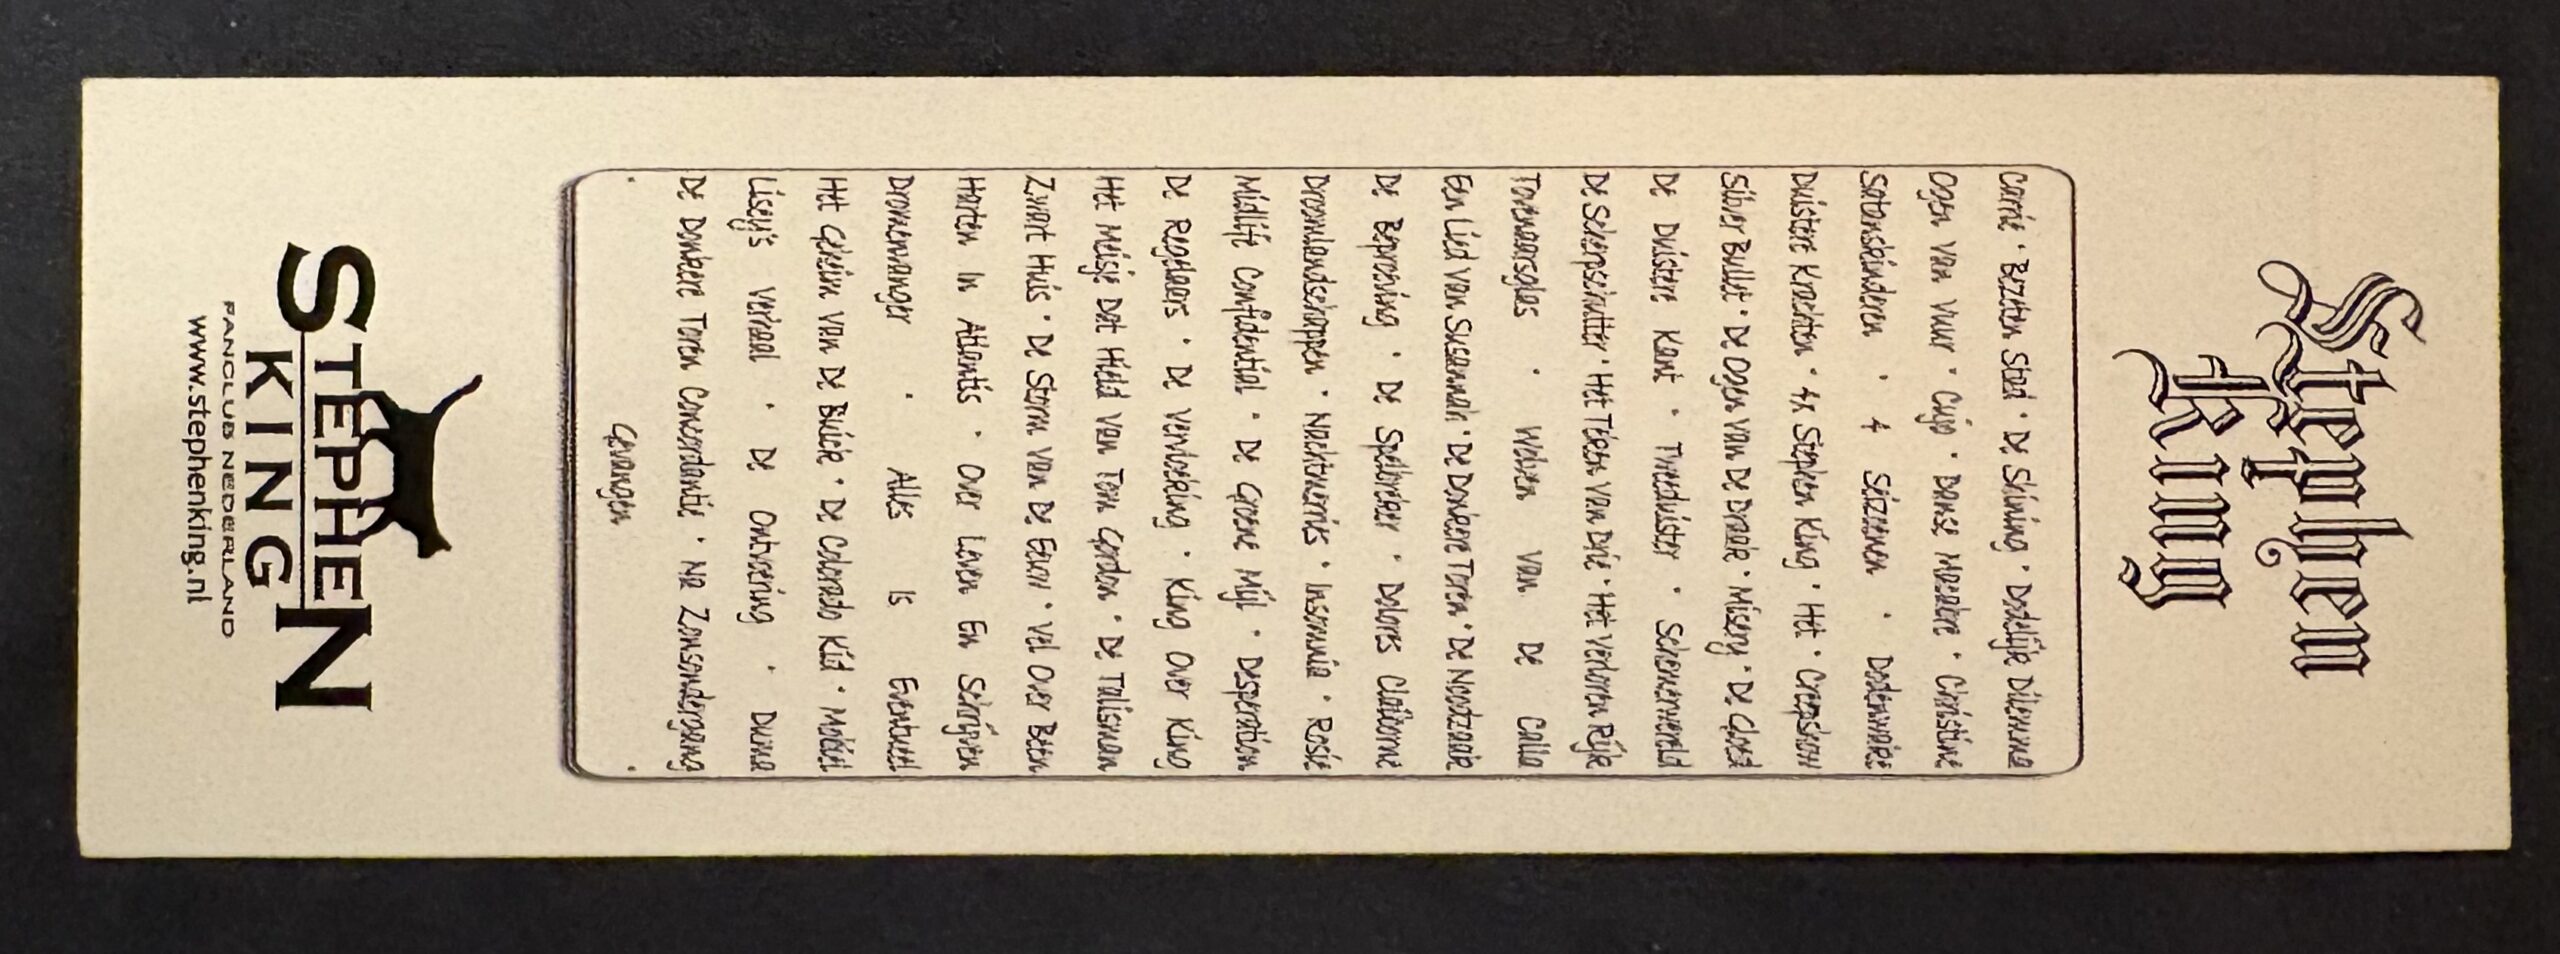 Stephen
King
Carrie · Bezeten Stad · De Shining · Dodelijk Dilemma
Ogen Van Vuur · Cujo · Danse Macabre · Christine
Satanskinderen · 4 Seizoenen · Dodenwake
Duistere Krachten · 4x Stephen King · Het · Creepshow
Silver Bullet · De Ogen Van De Draak · Misery · De Gloed
De Duistere Kant · Tweeduister · Schemerwereld
De Scherpschutter · Het Teken Van Drie · Het Verloren Rijk
Tovenaarsglas · Wolven Van De Calla
Een Lied Van Susannah · De Donkere Toren · De Noodzaak
De Beproeving · De Spelbreker · Dolores Claiborne
Droomlandschappen · Nachtmerries · Insomnia · Rosie
Midlife Confidential · De Groene Mijl · Desperation
De Regelaars · De Vervloeking · King Over King
Het Meisje Dat Hield Van Tom Gordon · De Talisman
Zwart Huis · De Storm Van De Eeuw · Vel Over Been
Harten In Atlantis · Over Leven En Schrijven
Dromenvanger · Alles Is Eventueel
Het Geheim Van De Buick · De Colorado Kid · Mobiel
Lisey's Verhaal · De Ontvoering · Duma
De Donkere Toren Concordantie · Na Zonsondergang
· Gevangen ·
STEPHEN
KING
FANCLUB NEDERLAND
www.stephenking.nl